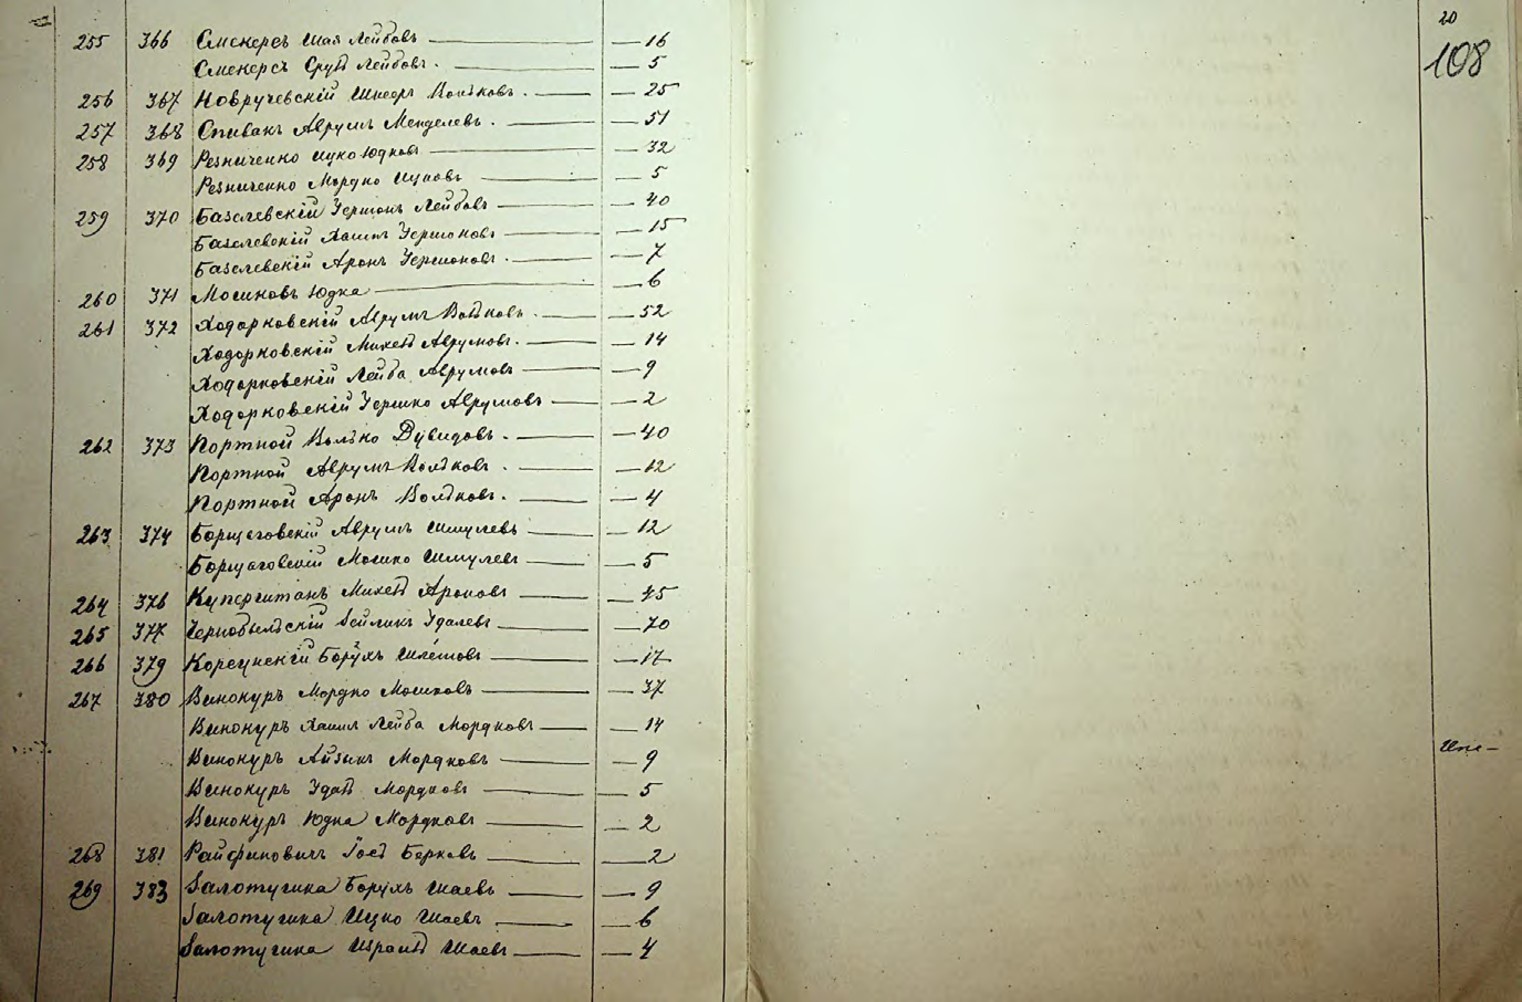 255 366 Смекерсъ Шая Лейбовъ — 16
Смекерсъ Сруль Лейбовъ. — 5
256 367 Новручевскій Шнеоръ Вольковъ. — 25
257 368 Спивакъ Аврумъ Менделевъ. — 51
258 369 Резниченко Ицко Юдковъ — 32
Резниченко Мордко Ицковъ — 5
259 370 Базелевскій Гершонъ Лейбовъ — 40
Базелевскій Хаимъ Гершоновъ — 15
Базелевскій Аронъ Гершоновъ. — 7
260 371 Мошковъ Юдка — 6
261 372 Ходорковскій Аврумъ Вольковъ. — 52
Ходорковскій Михель Аврумовъ. — 14
Ходорковскій Лейба Аврумовъ — 9
Ходорковскій Гершко Аврумовъ — 2
262 373 Портной Волько Дувидовъ. — 40
Портной Аврумъ Вольковъ. — 12
Портной Аронъ Вольковъ. — 4
263 374 Борщаговскій Аврумъ Шмулевъ — 12
Борщаговскій Мошко Шмулевъ — 5
264 376 Куперштокъ Михель Ароновъ — 45
265 377 Чернобыльскій Зейликъ Удалевъ — 70
266 379 Корсунскій Борухъ Шлемовъ — 17
267 380 Винокуръ Мордко Мошковъ — 37
Винокуръ Хаимъ Лейба Мордковъ — 14
Винокуръ Айзикъ Мордковъ — 9
Винокуръ Удаль Мордковъ — 5
Винокуръ Юдка Мордковъ — 2
268 381 Райфиновичъ Іось Берковъ — 2
269 383 Залотушка Борухъ Шаевъ — 9
Залотушка Ицко Шаевъ — 6
Залотушка Израиль Шаевъ — 4
20
108